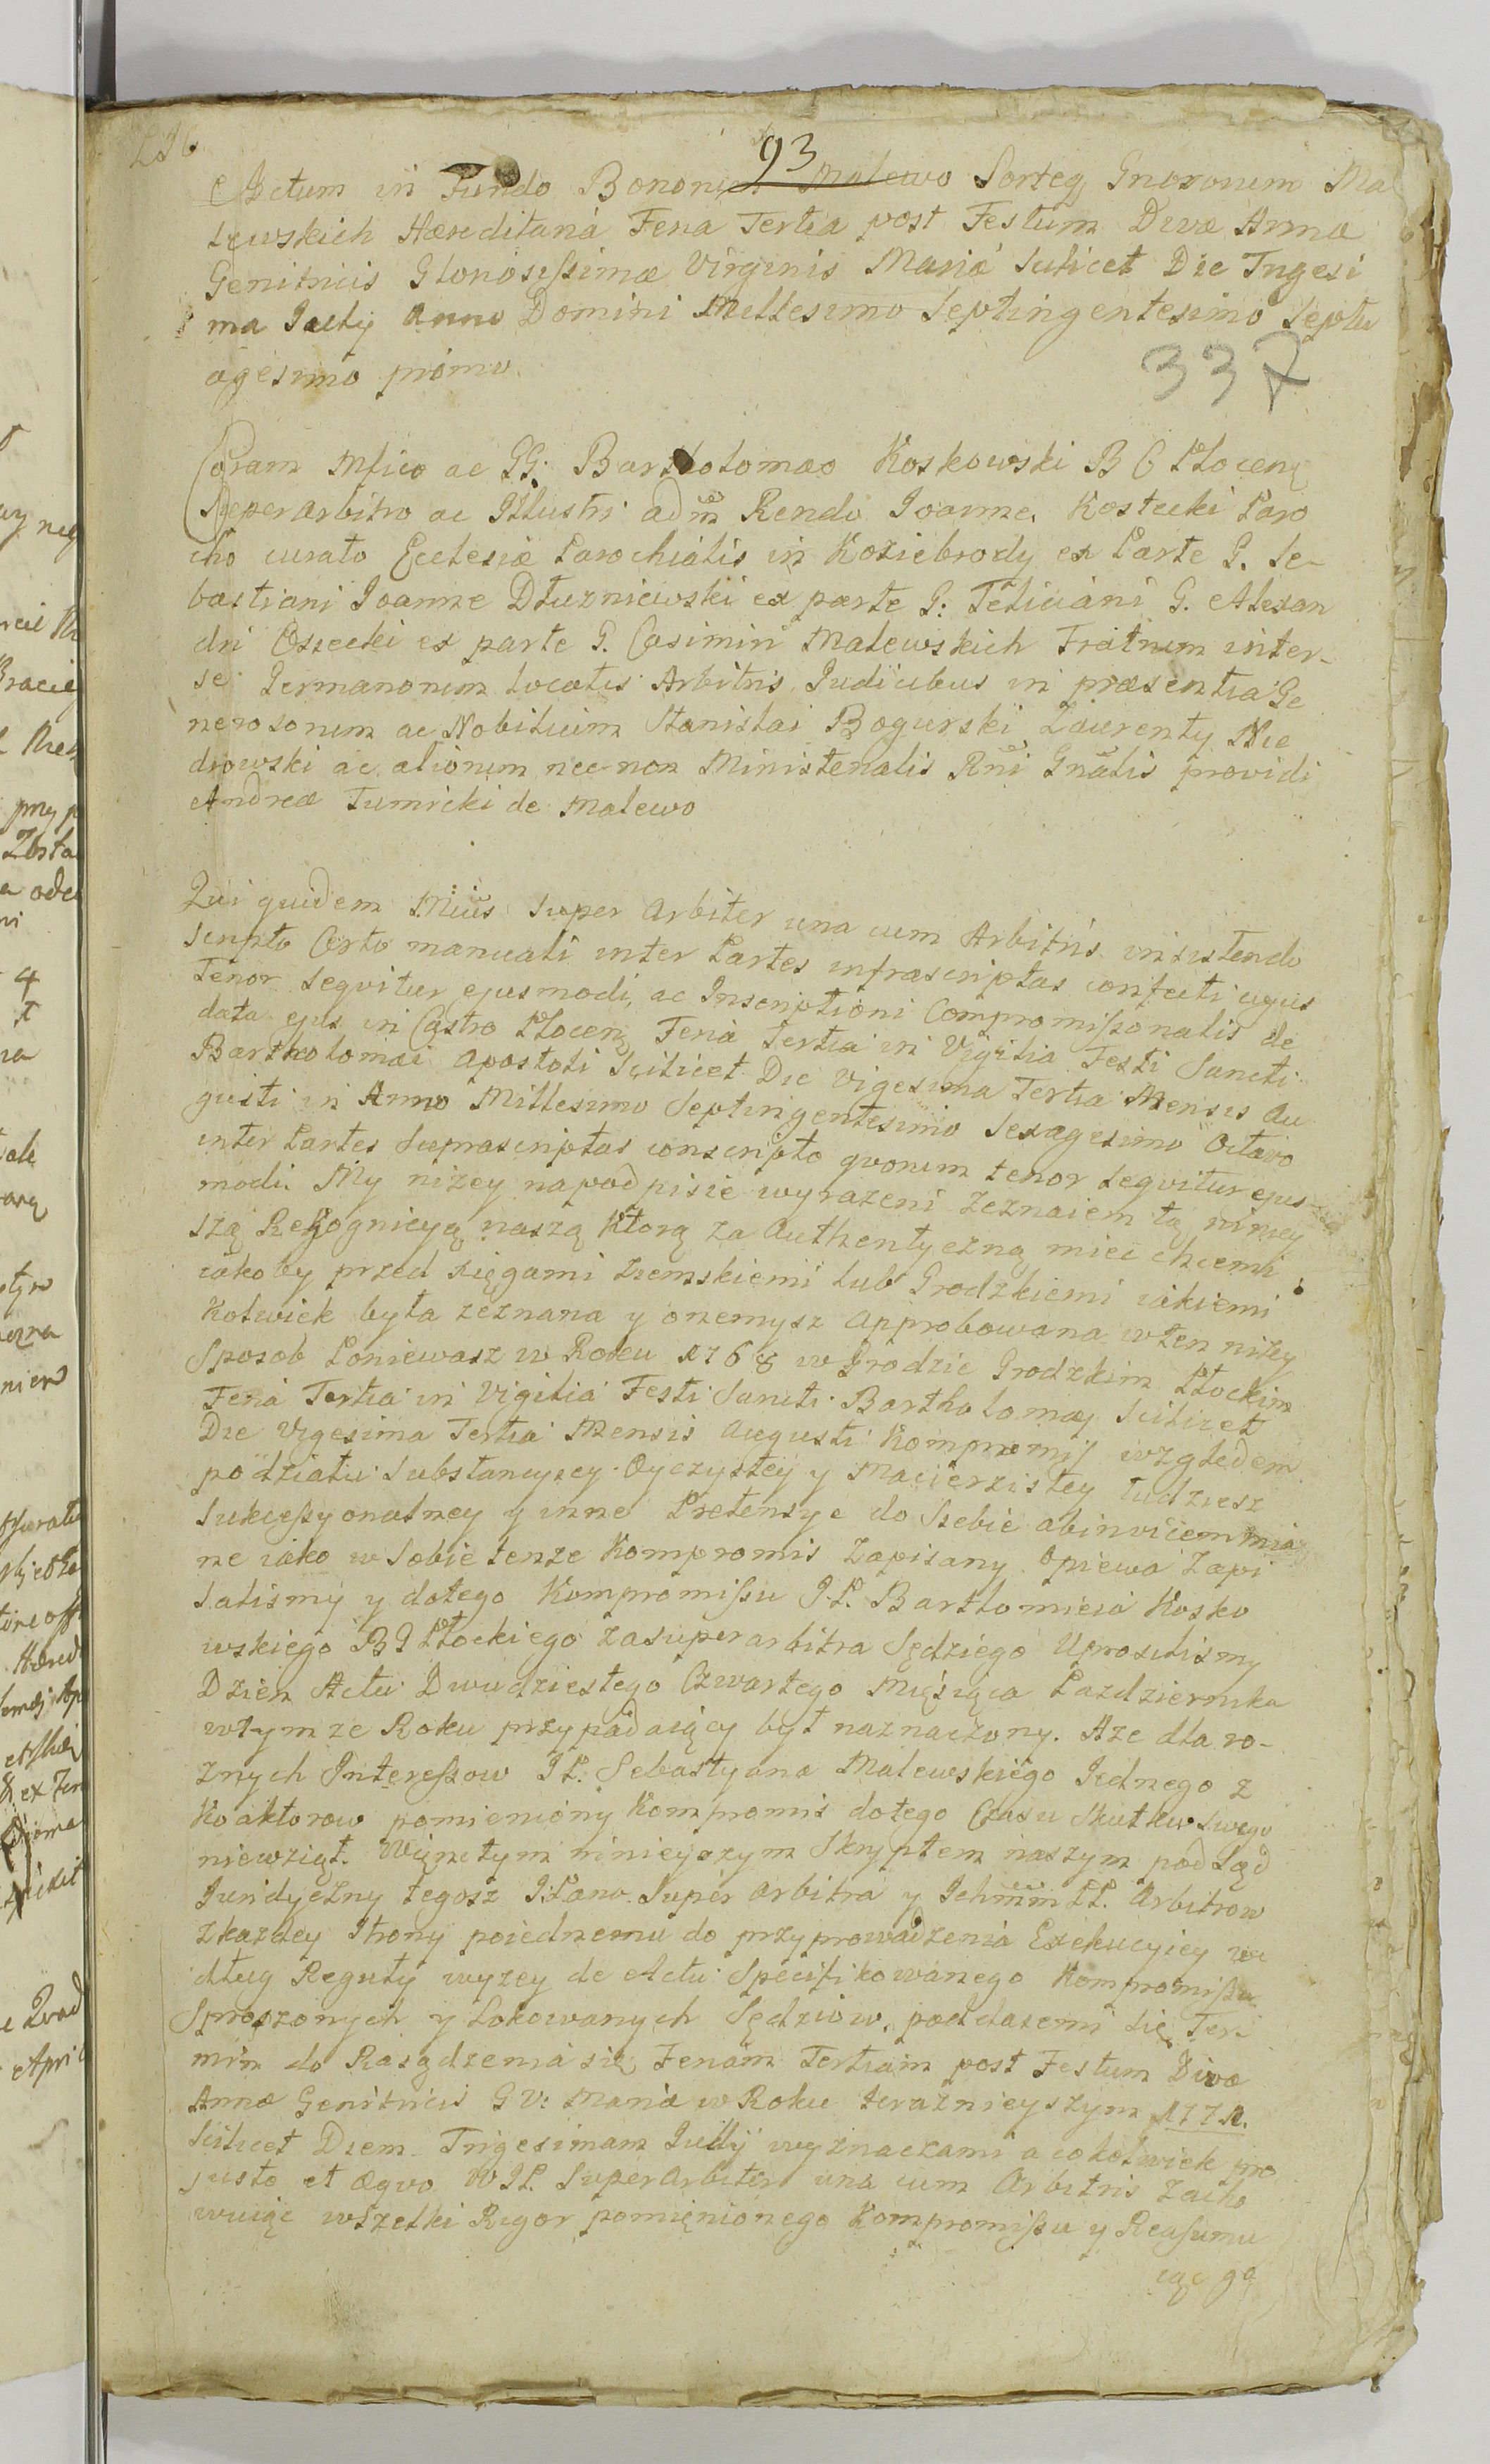 93
Actum in Fundo Bonorum Malewo Sorteq Gnosorum Ma
lewskich Hæreditaria Feria Tertia post Festum Divæ Annæ
Genitricis Gloriosissimæ Virginis Mariæ Scilicet Die Trigesi
ma Julÿ Anno Domini Millesimo Septingentesimo Septu
agesimo primo
337
Coram Mfico ac GG: Bartholomæo Koskowski B G Płocen
Superarbitro ac Illustri adm Rendo Joanne Kostecki Paro
cho curato Ecclesiæ Parochialis in Koziebrody ex Parte G. Se-
bastiani Joanne Dłuzniewski ex parte G: Feliciani G. Alexan
dri Osiecki ex parte G. Casimiri Malewskich Fratrum inter-
se Germanorum locatis Arbitris Judicibus in præsentia Ge
nerosorum ac Nobilium Stanislai Bogurski Laurenty Nie
drowski ac aliorum nec non Ministerialis Rni Gnalis providi
Andreæ Tumicki de Malewo
Qui quidem Mfius Super Arbiter una cum Arbitris insistendo
Scripto Certo manuali inter Partes infrascriptas confecti cujus
Tenor Seqvitur ejusmodi, ac Inscriptioni Compromissorialis de
data ejus in Castro Płocen Feria Tertia in Vigilia Festi Sancti
Bartholomæi Apostoli Scilicet Die Vigesima Tertia Mensis Au
gusti in Anno Millesimo Septingentesimo Sexagesimo Octavo
inter Partes Suprascriptas conscripto qvorum tenor seqvitur ejus-
modi. My nizey napodpisie wyrazeni Zeznaiem tą niniey
szą Rekognicyą naszą ktorą za Authentyczną mieć chcemy
iakoby przed xięgami ziemskiemi lub Grodzkiemi iakiemi
Kolwiek była zeznana y onemysz Approbowana wten nizey
Sposob Poniewasz w Roku 1768 w Grodzie Grodzkim Płockim
Feria Tertia in Vigilia Festi Sancti Bartholomæj Scilicet
Die Vigesima Tertia Mensis Augusti Kompromiss względem
podziału Substancyey Oyczystey y Macierzistey tudziesz
Sukcessyonalney y inne Pretensye do Siebie abinvicem mia
ne iako w Sobie tenze Kompromis Zapisany Opiewa Zapi
salismy y dotego Kompromissu J.P. Bartłomieia Kosko
wskiego B G Płockiego za superarbitra Sędziego Uprosilismy
Dzien Actu Dwudziestego Czwartego Miesiąca Pazdziernika
wtymze Roku przypadaiący był naznaczony. Aze dla ro-
znych Interessow JP. Sebastyana Malewskiego Jednego z
Koaktorow pomieniony Kompromis dotego Czasu Skutku swego
niewziął. Więnctym ninieyszym Skryptem naszym pod Sąd
Juridyczny tegosz J:Pana Super Arbitra y Jchmm PP. Arbitrow
zkazdey Strony poiednemu do przyprowadzenia Exekucyiey we
dług Reguły wyzey de Actu Specifikowanego Kompromissu
Sproszonych y Lokowanych Sędziow, poddaiemi się Ter
min do Rasądzenia się Feriam Tertiam post Festum Divæ
Annæ Genitricis G V: Mariæ w Roku teraznieyszym 1771.
Scilicet Diem Trigesimam Julÿ wyznaczami a cokolwiek pro
justo et æqvo WJP. Superarbiter una cum Arbitris Zacho
wuiąc wszelki Rygor pomięnionego Kompromissu y Reassumu
iąc go